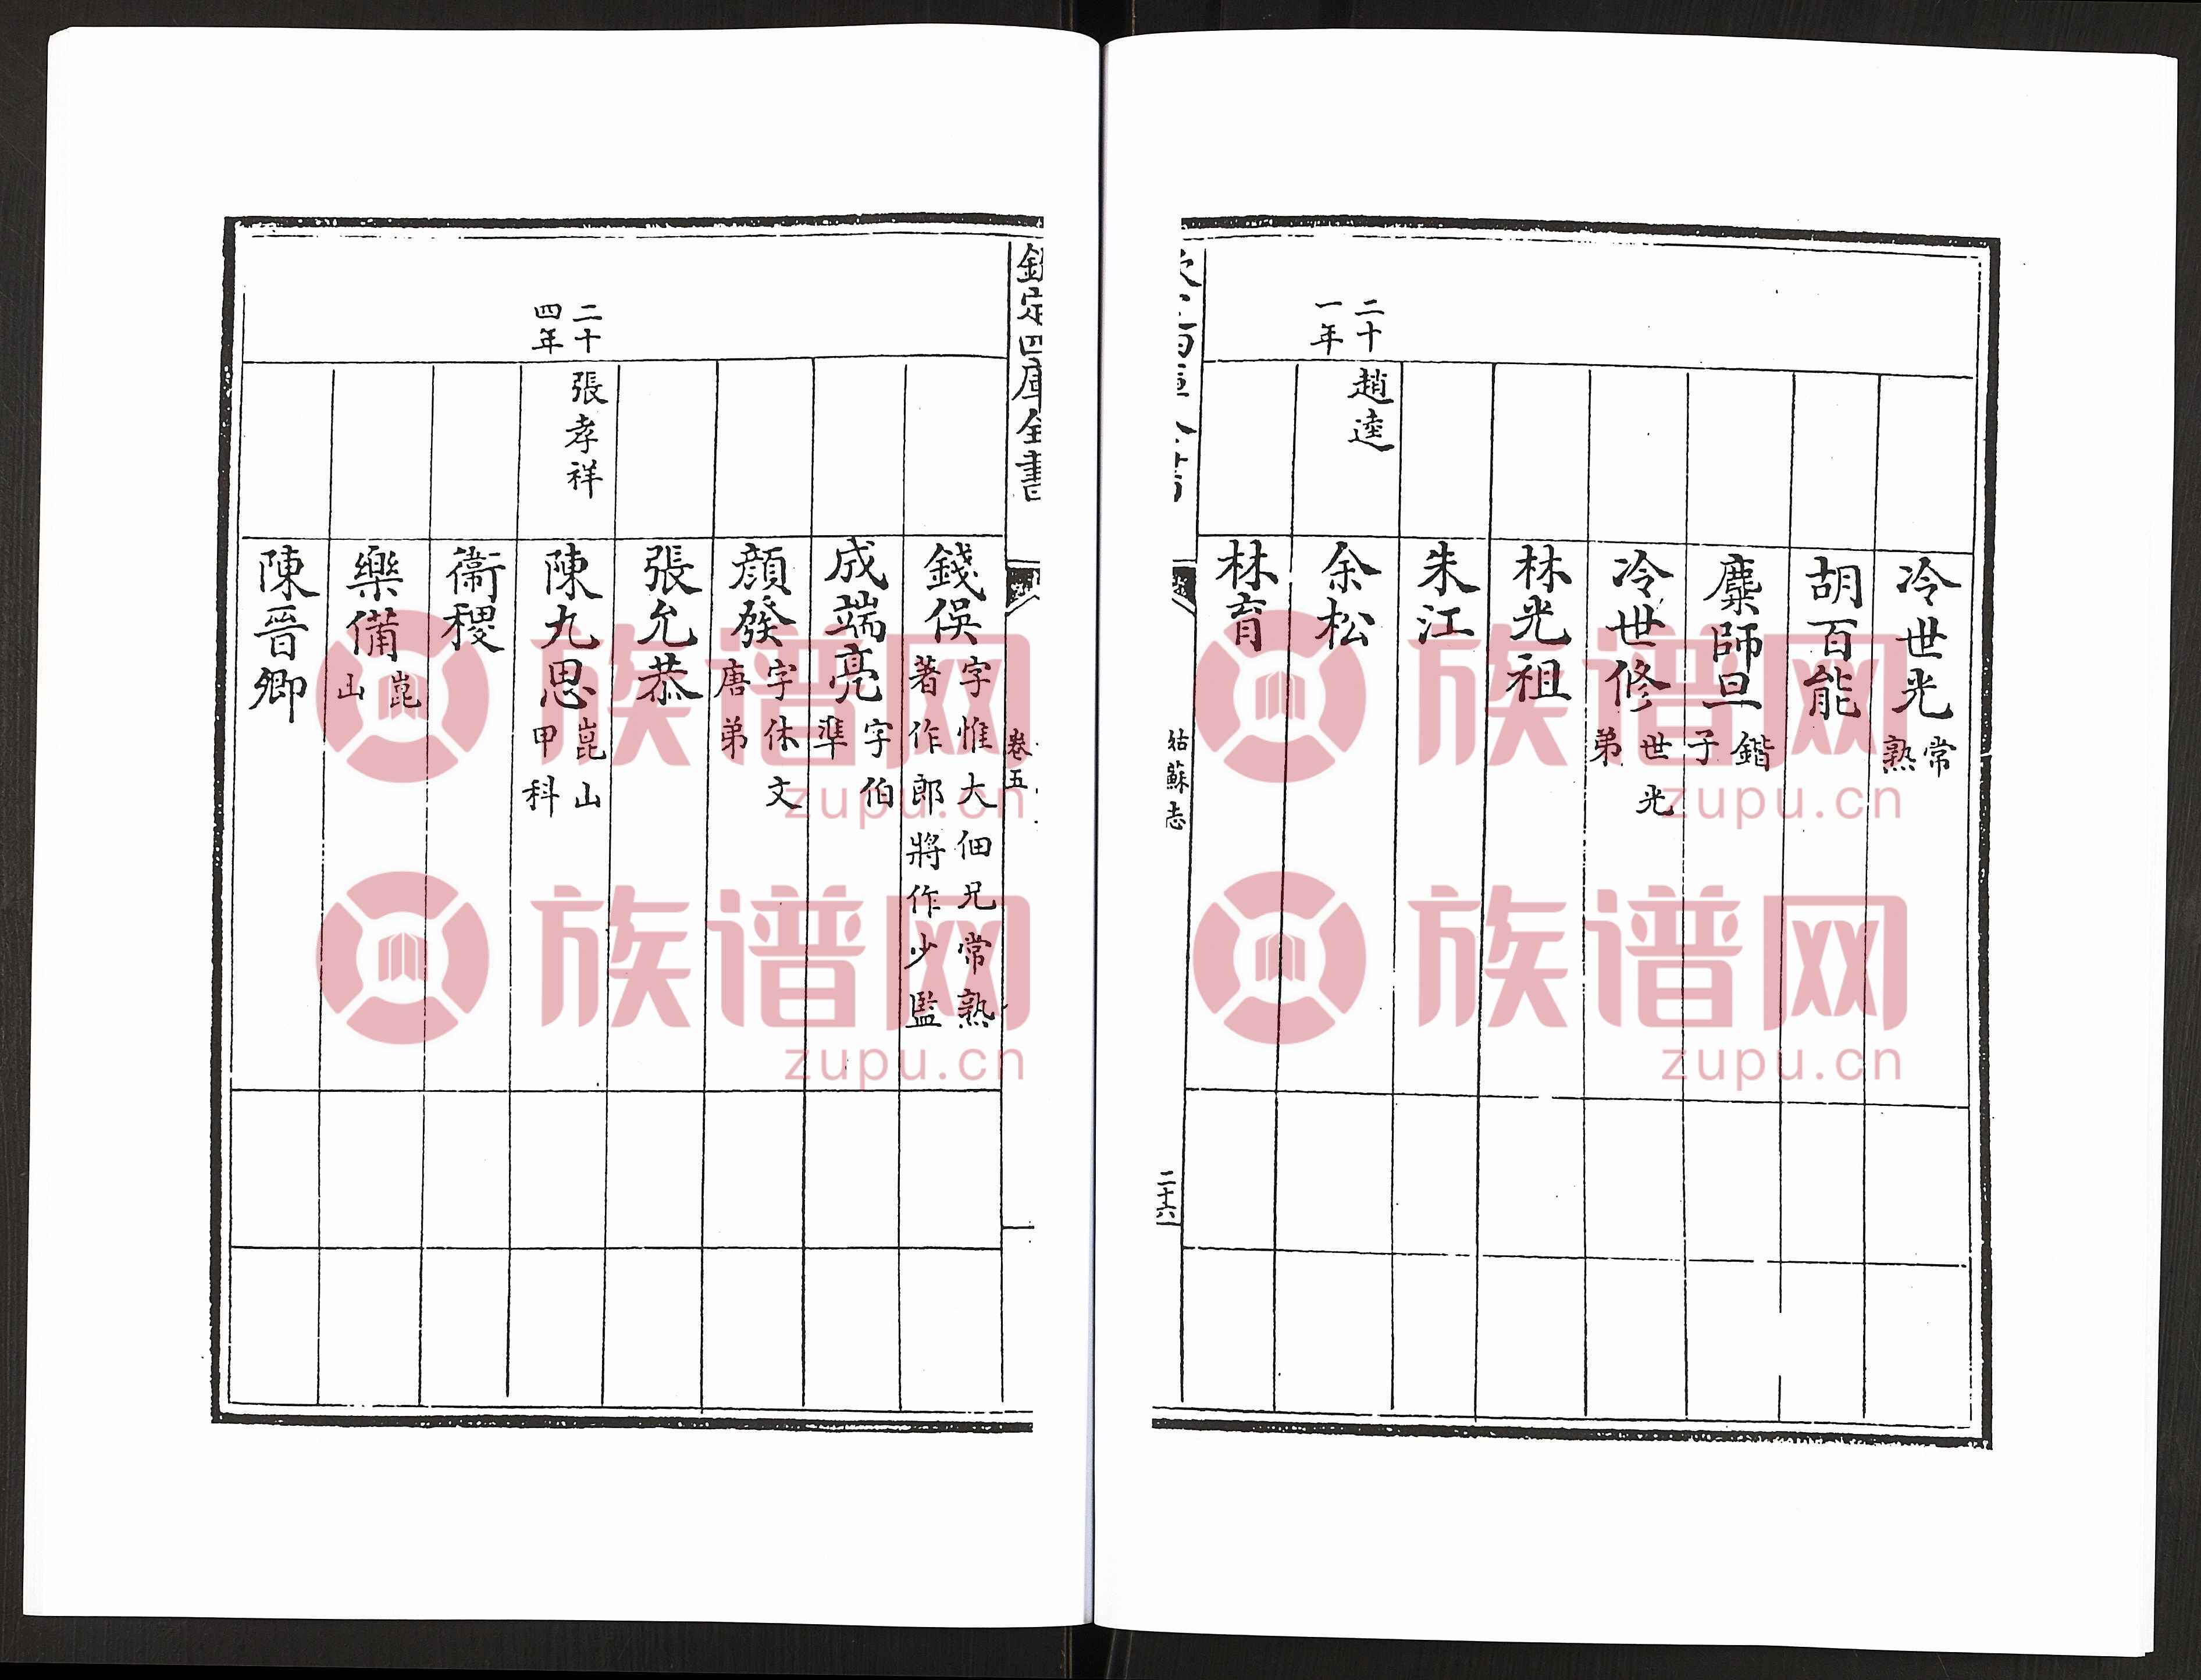 冷世光 常熟
胡百能
麋師旦 鍇子
冷世修 世光弟
林光祖
朱江
二十一年 趙逵 余松
林育
姑蘇志 二十六
欽定四庫全書 卷五
錢俁 字惟大佃兄常熟著作郎將作少監
成端亮 字伯準
顏發 字休文唐弟
張允恭
二十四年 張孝祥 陳九思 崑山甲科
衞稷
樂備 崑山
陳晉卿
族谱网 族谱网
zupu.cn zupu.cn
族谱网 族谱网
zupu.cn zupu.cn